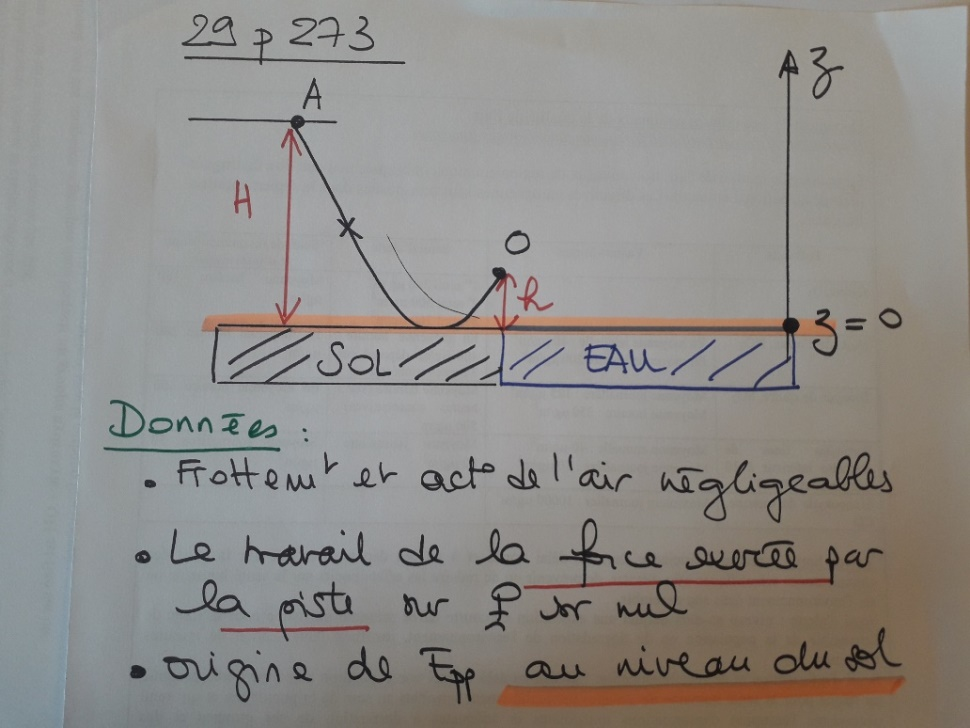 29 p 273
A
z
H
O
h
z = 0
SOL
EAU
Données :
• Frottemt et acto de l'air négligeables
• Le travail de la force exercée par
la piste sur est nul
• origine de Epp au niveau du sol